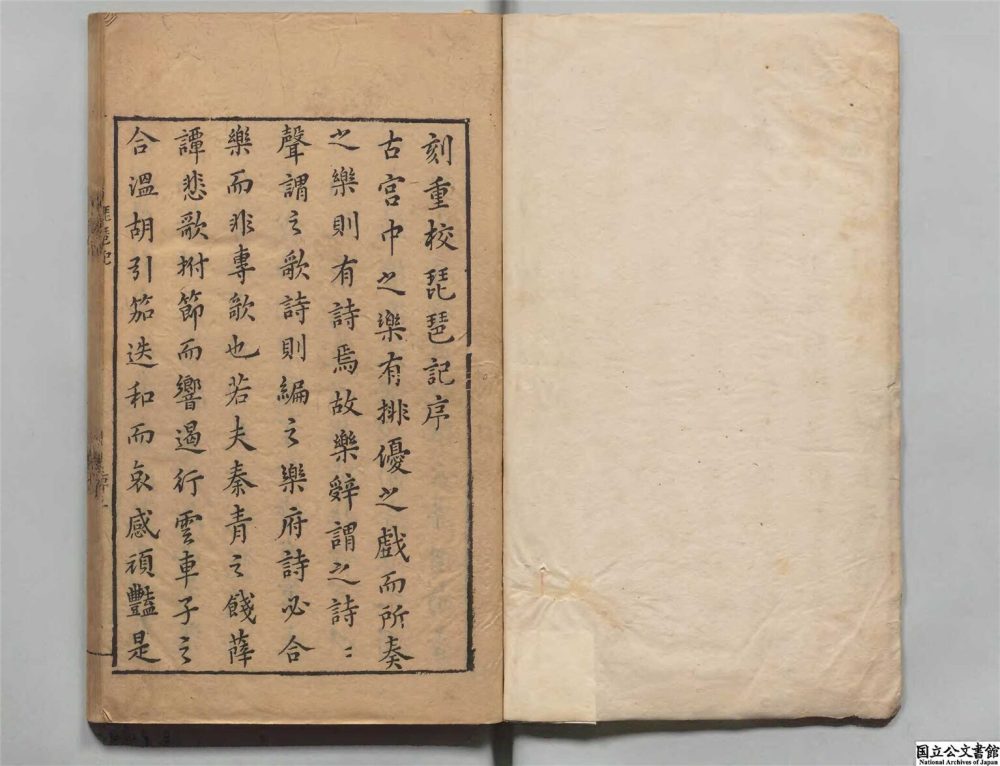 刻重校琵琶記序
古宫中之樂有排優之戲而所奏
之樂則有詩焉故樂辭謂之詩〻
聲謂之歌詩則編之樂府詩必合
樂而非專歌也若夫秦青之餞薛
譚悲歌拊節而響遏行雲車子之
合溫胡引笳迭和而哀感頑豔是
琵琶記
序
国立公文書館
National Archives of Japan